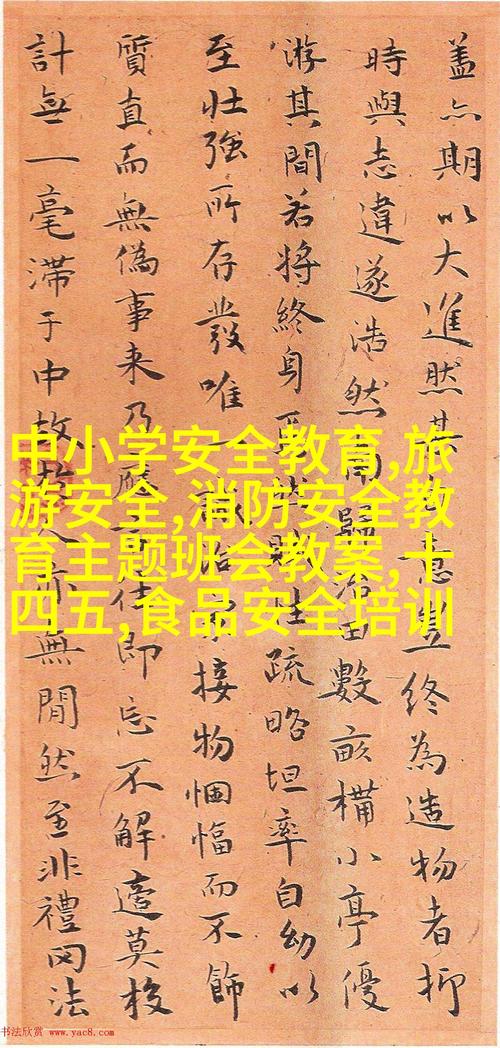 蓋亦期以大進然其意豈終為造物者抑
時與志違遂浩然歸田數畝構小亭優
游其間若將終身性疏略坦率自幼以
至壯強所存發唯一接物悃愊而不飾
質直而無偽事来乃應即忘不解莫校
計無一毫滯于中故人亦無閒然至非禮罔法
中小学安全教育,旅
游安全,消防安全教
育主题班会教案,十
四五,食品安全培训
书法欣赏 www.yac8.com